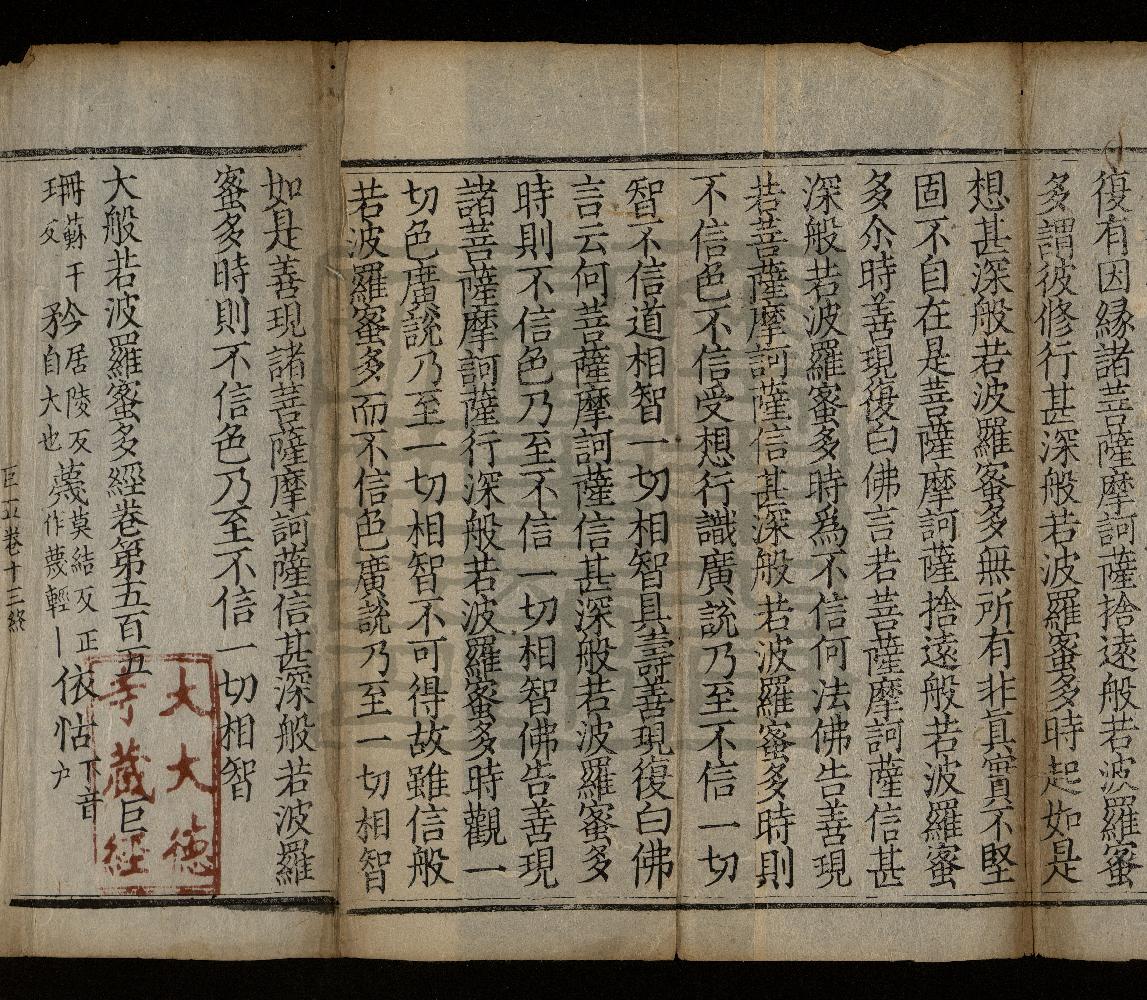 復有因緣諸菩薩摩訶薩捨遠般若波羅蜜
多謂彼修行甚深般若波羅蜜多時起如是
想甚深般若波羅蜜多無所有非真實不堅
固不自在是菩薩摩訶薩捨遠般若波羅蜜
多尒時善現復白佛言若菩薩摩訶薩信甚
深般若波羅蜜多時為不信何法佛告善現
若菩薩摩訶薩信甚深般若波羅蜜多時則
不信色不信受想行識廣說乃至不信一切
智不信道相智一切相智具壽善現復白佛
言云何菩薩摩訶薩信甚深般若波羅蜜多
時則不信色乃至不信一切相智佛告善現
諸菩薩摩訶薩行深般若波羅蜜多時觀一
切色廣說乃至一切相智不可得故雖信般
若波羅蜜多而不信色廣說乃至一切相智
如是善現諸菩薩摩訶薩信甚深般若波羅
蜜多時則不信色乃至不信一切相智
大般若波羅蜜多經卷第五百五 巨
珊蘇干反 矜居陵反自大也 蔑莫結反正作蔑輕丨 依怙下音户
卷十三終
大大德
寺藏經